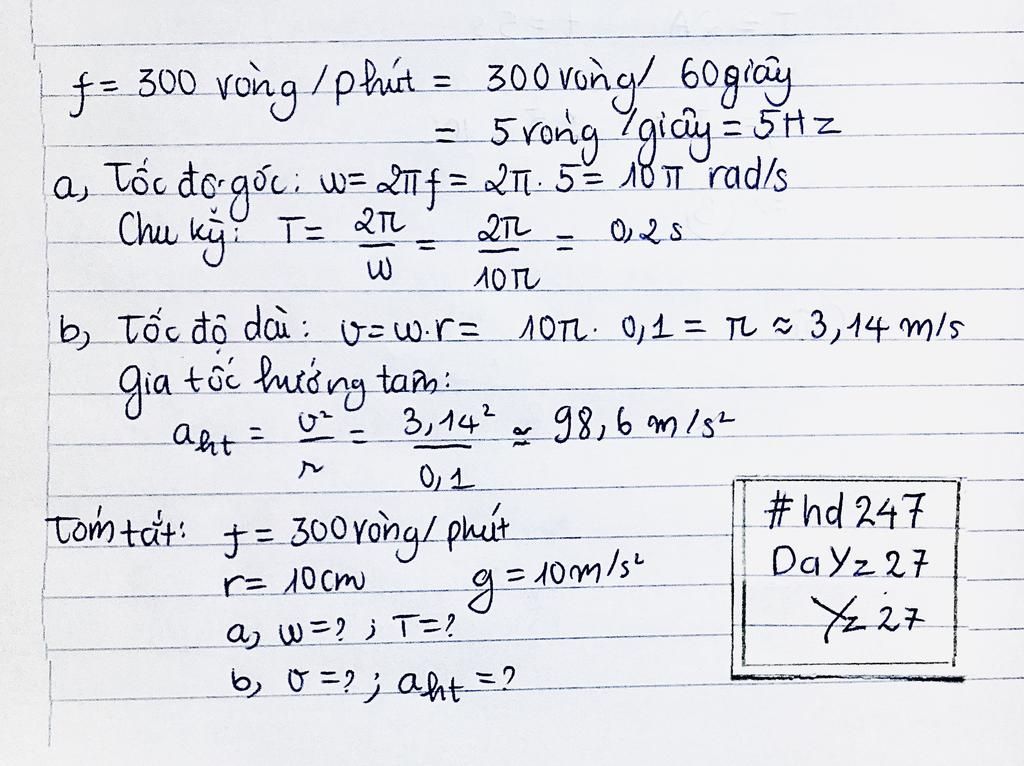 f = 300 vòng / phút = 300 vòng/ 60 giây
= 5 vòng /giây = 5Hz
a, Tốc độ góc: w = 2πf = 2π. 5 = 10π rad/s
Chu kỳ: T = 2π/w = 2π/10π = 0,2 s
b, Tốc độ dài: v = w.r = 10π. 0,1 = π ≈ 3,14 m/s
Gia tốc hướng tâm:
aht = v²/r = 3,14²/0,1 ≃ 98,6 m/s²
Tóm tắt: f = 300 vòng/ phút
r = 10cm g = 10m/s²
a, w = ? ; T = ?
b, v = ? ; aht = ?
#hd247
DaYz27
Yz 27